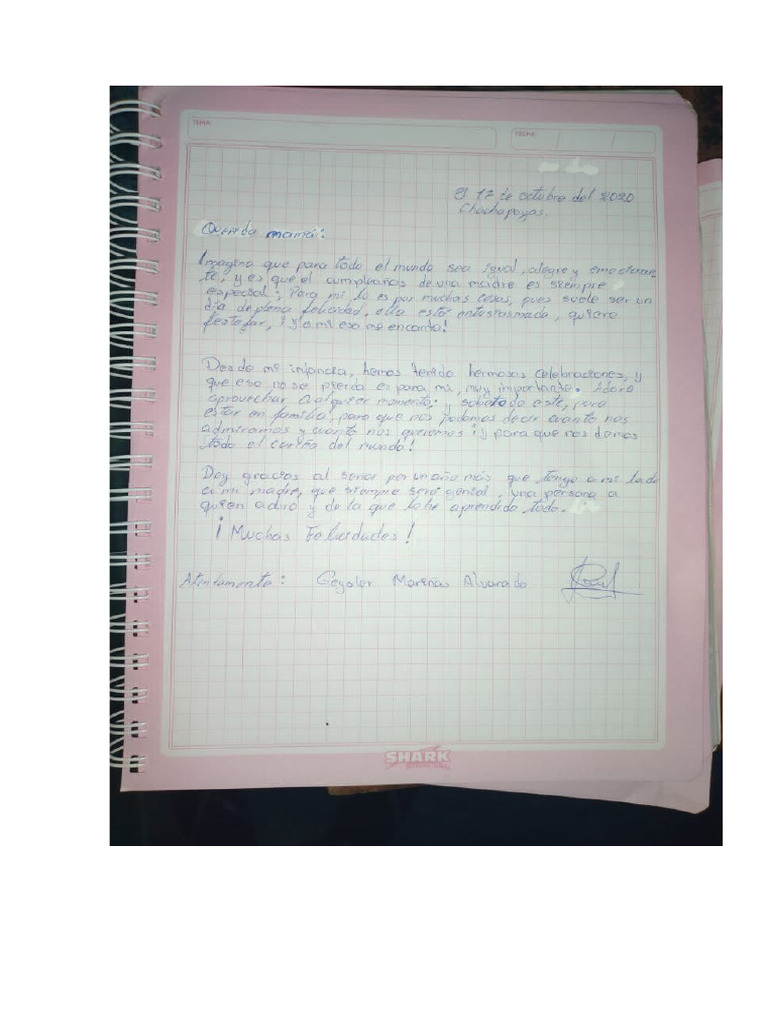 TEMA:
FECHA:
El 17 de octubre del 2020
Chachapoyas.
Querida mamá:
Imagino que para todo el mundo sea igual, alegre y emocionan-
te, y es que el cumpleaños de una madre es siempre
especial; Para mi lo es por muchas cosas, pues suele ser un
día de plena felicidad, ella estar entusiasmada, quiere
festejar, ¡y a mi eso me encanta!
Desde mi infancia, hemos tenido hermosas celebraciones, y
que eso no se pierda es para mi, muy importante. Adoro
aprovechar cualquier momento; y sobretodo este, para
estar en familia, para que nos podamos decir cuanto nos
admiramos y cuanto nos queremos ¡y para que nos demos
todo el cariño del mundo!
Doy gracias al señor por un año más que tengo a mi lado
a mi madre, que siempre será genial, una persona a
quien adoro y de la que lo he aprendido todo.
¡Muchas Felicidades!
Atentamente: Geysler Mareñas Alvarado
SHARK